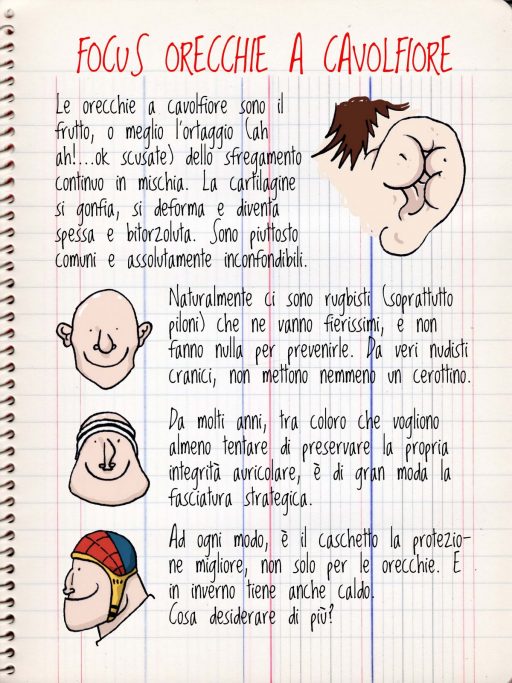 FOCUS ORECCHIE A CAVOLFIORE
Le orecchie a cavolfiore sono il
frutto, o meglio l'ortaggio (ah
ah!...ok scusate) dello sfregamento
continuo in mischia. La cartilagine
si gonfia, si deforma e diventa
spessa e bitorzoluta. Sono piuttosto
comuni e assolutamente inconfondibili.
Naturalmente ci sono rugbisti (soprattutto
piloni) che ne vanno fierissimi, e non
fanno nulla per prevenirle. Da veri nudisti
cranici, non mettono nemmeno un cerottino.
Da molti anni, tra coloro che vogliono
almeno tentare di preservare la propria
integrità auricolare, è di gran moda la
fasciatura strategica.
Ad ogni modo, è il caschetto la protezio-
ne migliore, non solo per le orecchie. E
in inverno tiene anche caldo.
Cosa desiderare di più?